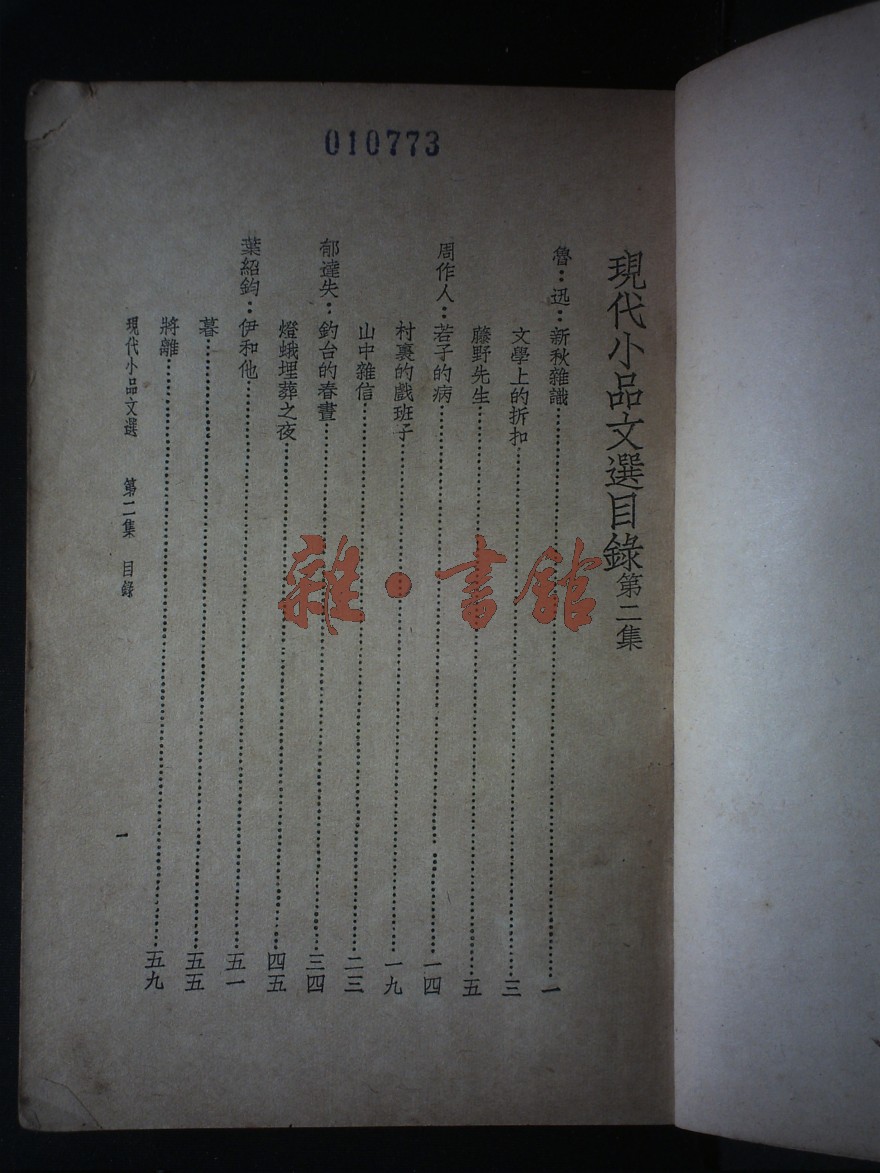 010773
現代小品文選目錄 第二集
魯迅：新秋雜識……一
文學上的折扣……三
藤野先生……五
周作人：若子的病……一四
村裏的戲班子……一九
山中雜信……二三
郁達失：釣台的春晝……三四
燈蛾埋葬之夜……四五
葉紹鈞：伊和他……五一
暮……五五
將離……五九
現代小品文選 第二集 目錄
一
雜·書館